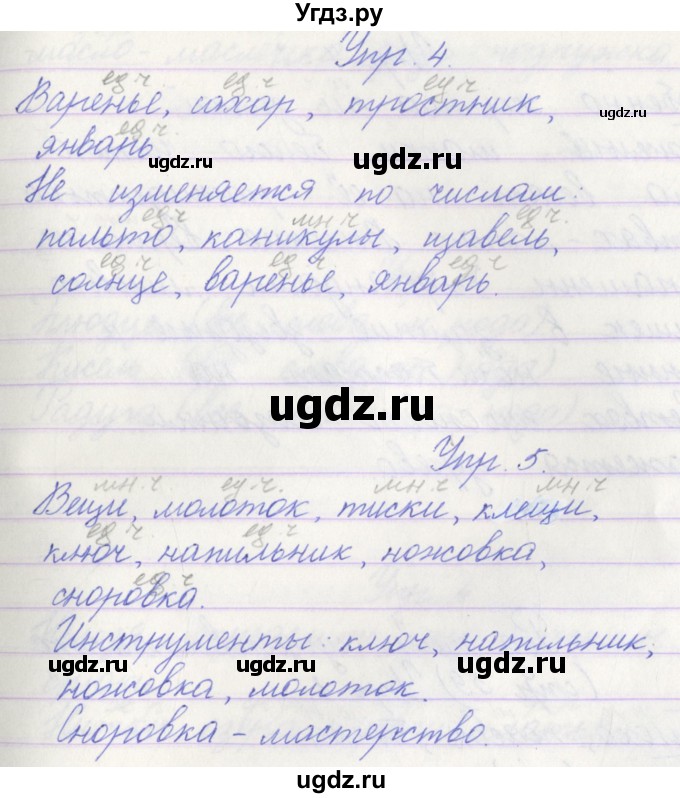 Угдз.ру
Упр. 4.
ед.ч ед.ч ед.ч
Варенье, сахар, тростник,
ugdz.ru
ед.ч
январь
ugdz.ru ugdz.ru
Не изменяется по числам:
ед.ч мн.ч ед.ч.
пальто, каникулы, щавель,
ед.ч ед.ч ед.ч
солнце, варенье, январь.
ugdz.ru
Упр. 5.
мн.ч ед.ч. мн.ч мн.ч
Вещи, молоток, тиски, клещи,
ед.ч ед.ч
ключ, напильник, ножовка,
ед.ч
сноровка.
Инструменты: ключ, напильник,
ugdz.ru ugdz.ru ugdz.ru
ножовка, молоток.
Сноровка - мастерство.
ugdz.ru